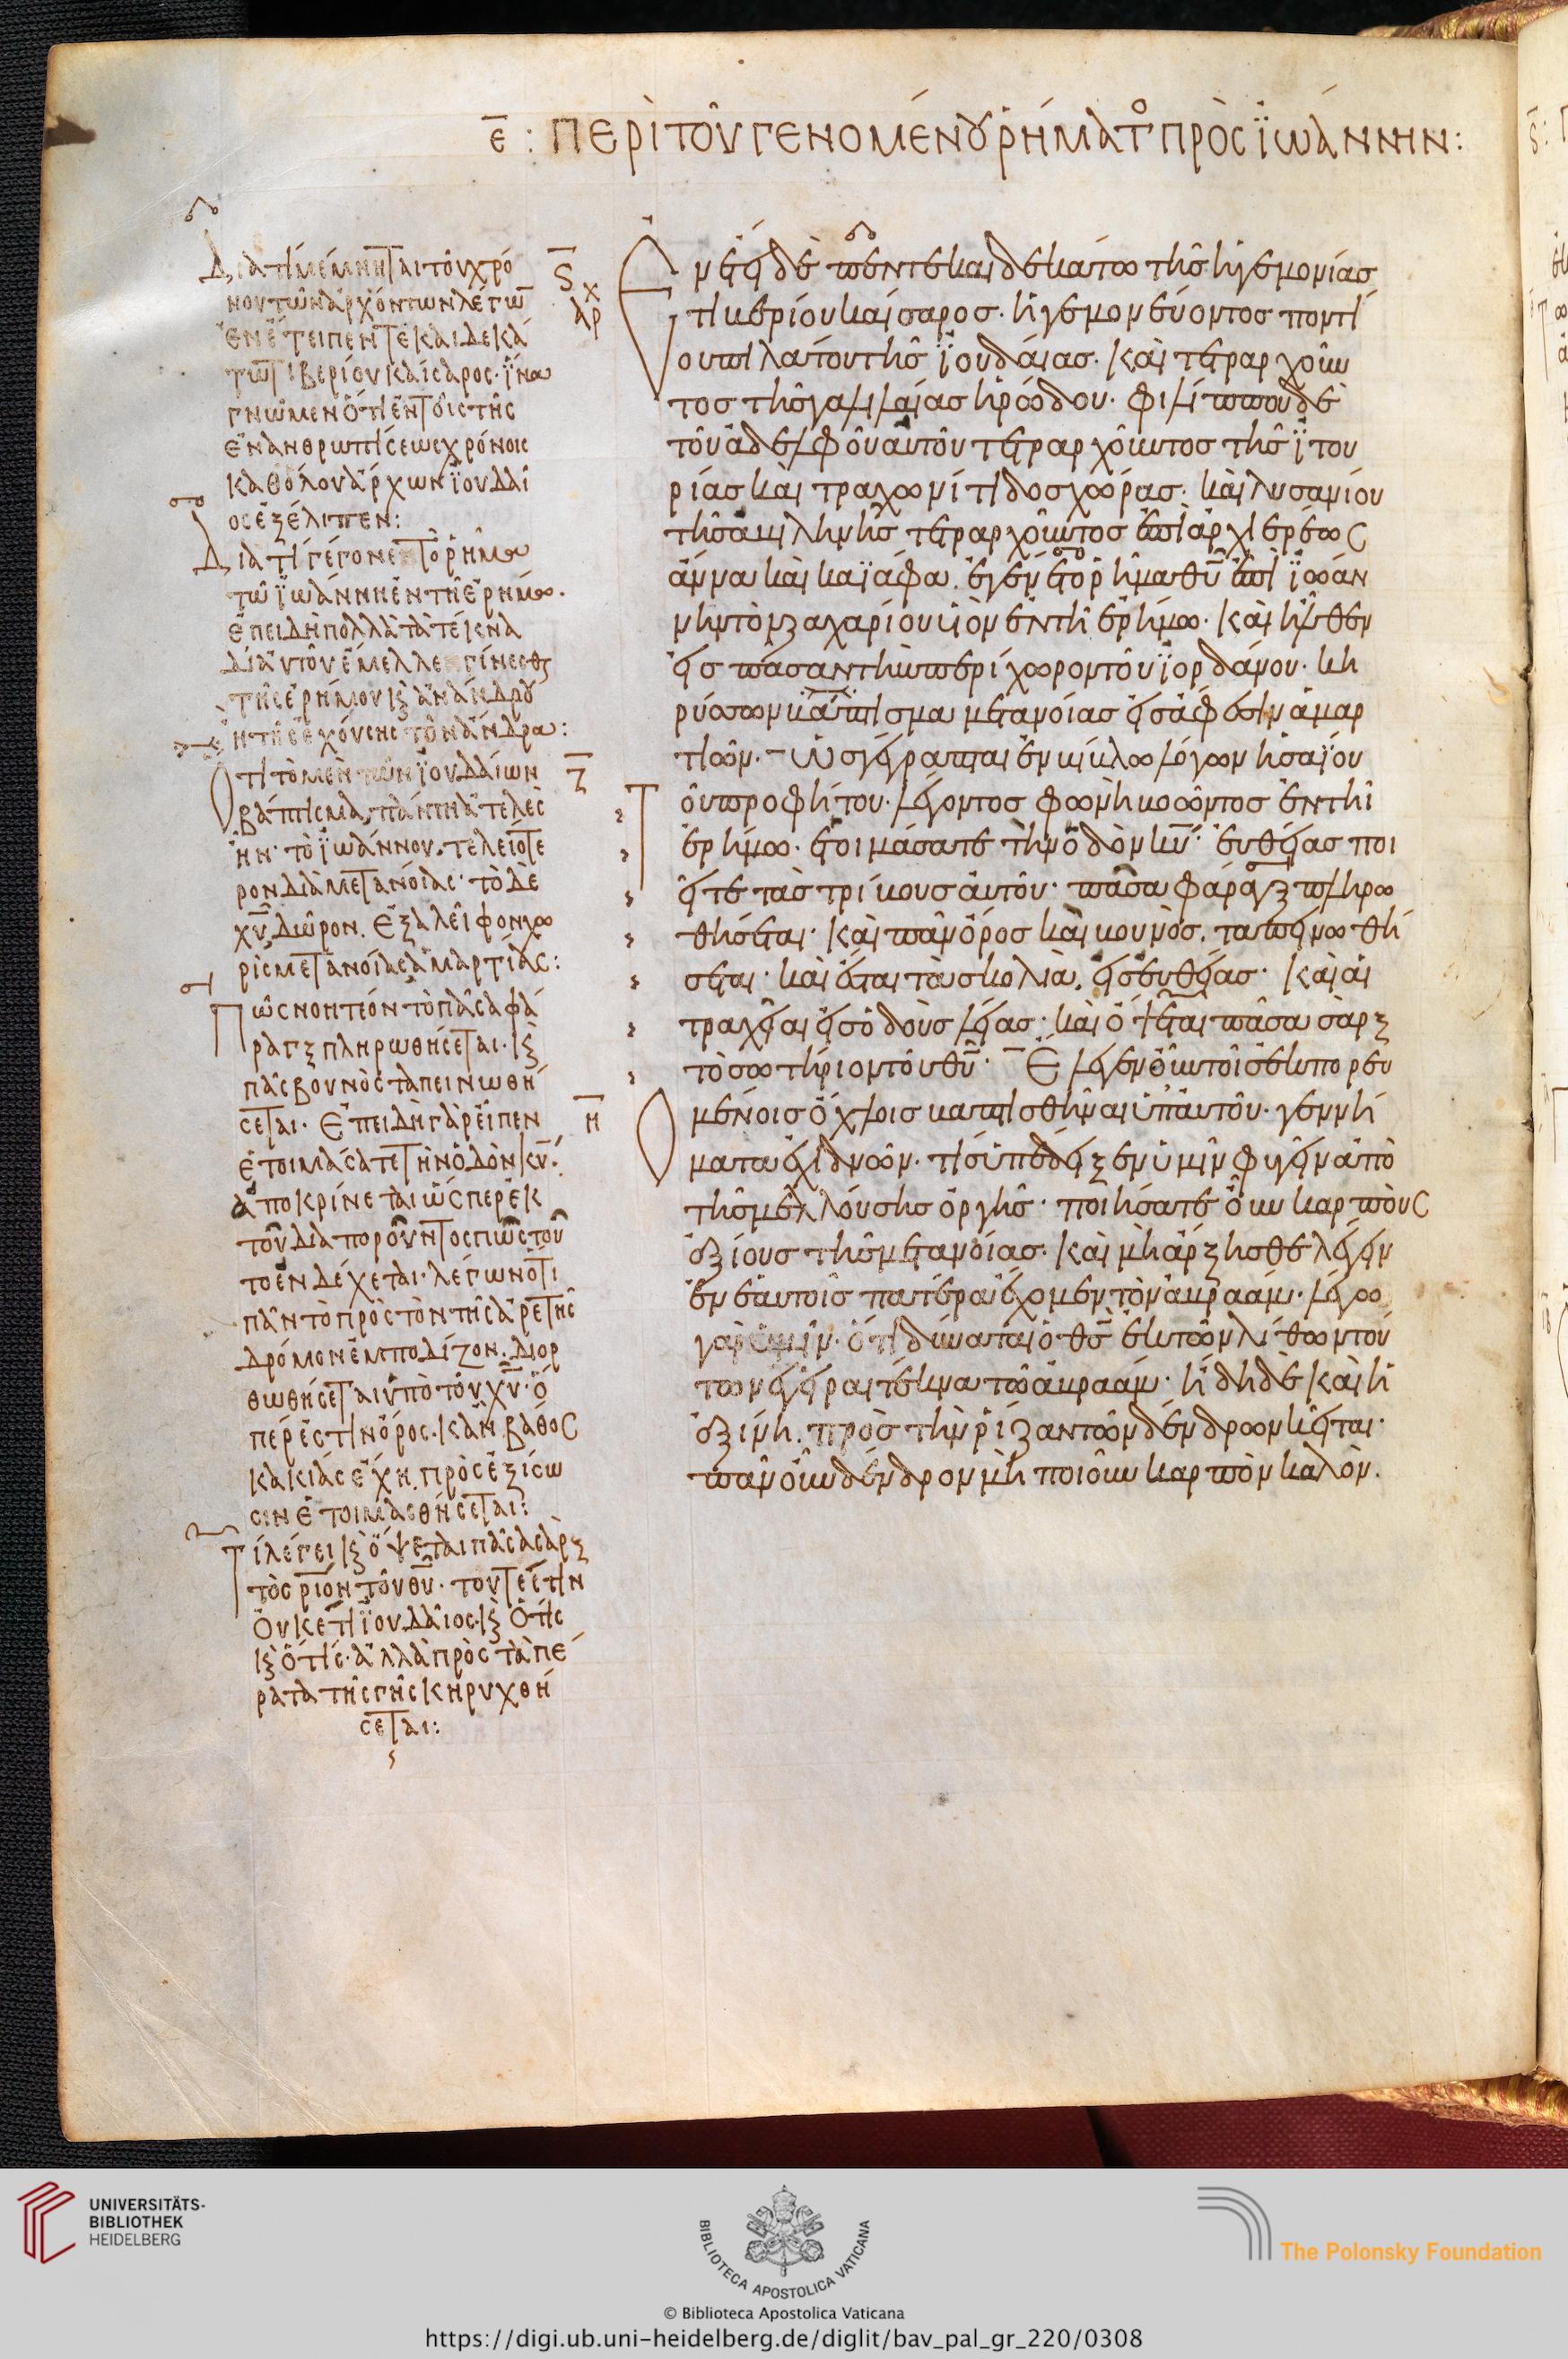 ε̅ : ΠΕΡῚ ΤΟΥ͂ ΓΕΝΟΜΈΝΟΥ ῬΉΜΑΤΟ ΠΡῸς ἸΩΆΝΝΗΝ:
Διατί μέμνηται τοῦ χρό
νου τῶν ἀρχόντων λέγω̅
ἐν ἔτει πεντεκαιδεκά
τω τιβερίου καίσαρος· ἵνα
γνῶμεν ὅτι ἐν τοῖς τῆς
ἐνανθρωπίσεως χρόνοις
καθόλου ἄρχων ϊουδαῖ
ος ἐξέλιπεν:
Διατί γέγονε τὸ ῥῆμα
τῶ ϊωάννη ἐν τῆ ἐρήμω.
ἐπειδὴ πολλὰ τὰ τέκνα
δι αὐτοῦ ἔμελλε γίνεσθαι
τῆς ἐρήμου κ(αὶ) ἀνάνδρου
ἢ τῆς ἐχούσης τὸν ἄνδρα:
Ὅτι τὸ μὲν τῶν ϊουδαίων
βάπτισμα, πάντη ἀτελὲς
ἦν· τὸ ϊωάννου, τελειότε
ρον διὰ μετανοίας· τὸ δὲ
χυ̅ δῶρον. ἐξαλεῖφον χω
ρὶς μετανοίας ἁμαρτίας:
Πῶς νοητέον τὸ πᾶσα φά
ραγξ πληρωθήσεται· κ(αὶ)
πᾶς βουνὸς ταπεινωθή
σεται· Ἐπειδὴ γὰρ εἶπεν
ἑτοιμάσατε τὴν ὁδὸν κυ̅·
ἀποκρίνεται ὥσπερ ἐκ
τοῦ διαποροῦντος πῶς τοῦ
το ἐνδέχεται· λέγων ὅτι
πᾶν τὸ πρὸς τὸν τῆς ἀρετῆς
δρόμον ἐμποδίζον. διορ
θωθήσεται ὑπὸ τοῦ χυ̅· ὅ
περ ἐστὶν ὄρος. κἂν βάθος
κακίας ἔχη. πρὸς ἐξίσω
σιν ἑτοιμασθήσεται:
Τί λέγει κ(αὶ) ὄψεται πᾶσα σὰρξ
τὸ σριον τοῦ θυ̅· τουτέστιν
Οὐκέτι ϊουδαῖος κ(αὶ) ὅτις
κ(αὶ) ὅτις· ἀλλὰ πρὸς τὰ πέ
ρατα τῆς γῆς κηρυχθή
σεται:
Ἐν ἔτει δὲ πεντεκαιδεκάτω τῆς ἡγεμονίας
τιβερίου καίσαρος· ἡγεμονεύοντος ποντί
ου πιλάτου τῆς ϊουδαίας· καὶ τετραρχοῦν
τος τῆς γαλιλαίας ἡρώδου· φιλίππου δὲ
τοῦ ἀδελφοῦ αὐτοῦ τετραρχοῦντος τῆς ϊτου
ρίας καὶ τραχωνίτιδος χώρας· καὶ λυσανίου
τῆς ἀβιληνῆς τετραρχοῦντος ἐπὶ ἀρχιερέως
ἄννα καὶ καϊάφα. ἐγένετο ῥῆμα θυ̅ ἐπὶ ϊωάν
νην τὸν ζαχαρίου υἱὸν ἐν τῆ ἐρήμω· καὶ ἦλθεν
εἰς πᾶσαν τὴν περίχωρον τοῦ ϊορδάνου· κη
ρύσσων βάπτισμα μετανοίας εἰς ἄφεσιν ἁμαρ
τιῶν. Ὡς γέγραπται ἐν βίβλω λόγων ἡσαΐου
τοῦ προφήτου· λέγοντος φωνὴ βοῶντος ἐν τῆ
ἐρήμω· ἑτοιμάσατε τὴν ὁδὸν κυ̅· εὐθείας ποι
εῖτε τὰς τρίβους αὐτοῦ· πᾶσα φάραγξ πληρω
θήσεται· καὶ πᾶν ὄρος καὶ βουνὸς. ταπεινωθή
σεται· καὶ ἔσται τὰ σκολιὰ, εἰς εὐθείας· καὶ αἱ
τραχεῖαι εἰς ὁδοὺς λείας· καὶ ὄψεται πᾶσα σὰρξ
τὸ σωτήριον τοῦ θυ̅· Ἔλεγεν οὖν τοῖς ἐκπορευ
ομένοις ὄχλοις βαπτισθῆναι ὑπ' αὐτοῦ· γεννή
ματα ἐχιδνῶν. τίς ὑπέδειξεν ὑμῖν φυγεῖν ἀπὸ
τῆς μελλούσης ὀργῆς· ποιήσατε οὖν καρποὺς
ἀξίους τῆς μετανοίας· καὶ μὴ ἄρξησθε λέγειν
ἐν ἑαυτοῖς πατέρα ἔχομεν τὸν ἀβραάμ· λέγω
γὰρ ὑμῖν· ὅτι δύναται ὁ θς̅ ἐκ τῶν λίθων τού
των ἐγεῖραι τέκνα τῶ ἀβραάμ· ἤδη δὲ καὶ ἡ
ἀξίνη πρὸς τὴν ῥίζαν τῶν δένδρων κεῖται·
πᾶν οὖν δένδρον μὴ ποιοῦν καρπὸν καλὸν.
UNIVERSITÄTS-
BIBLIOTHEK
HEIDELBERG
BIBLIOTECA APOSTOLICA VATICANA
The Polonsky Foundation
© Biblioteca Apostolica Vaticana
https://digi.ub.uni-heidelberg.de/diglit/bav_pal_gr_220/0308